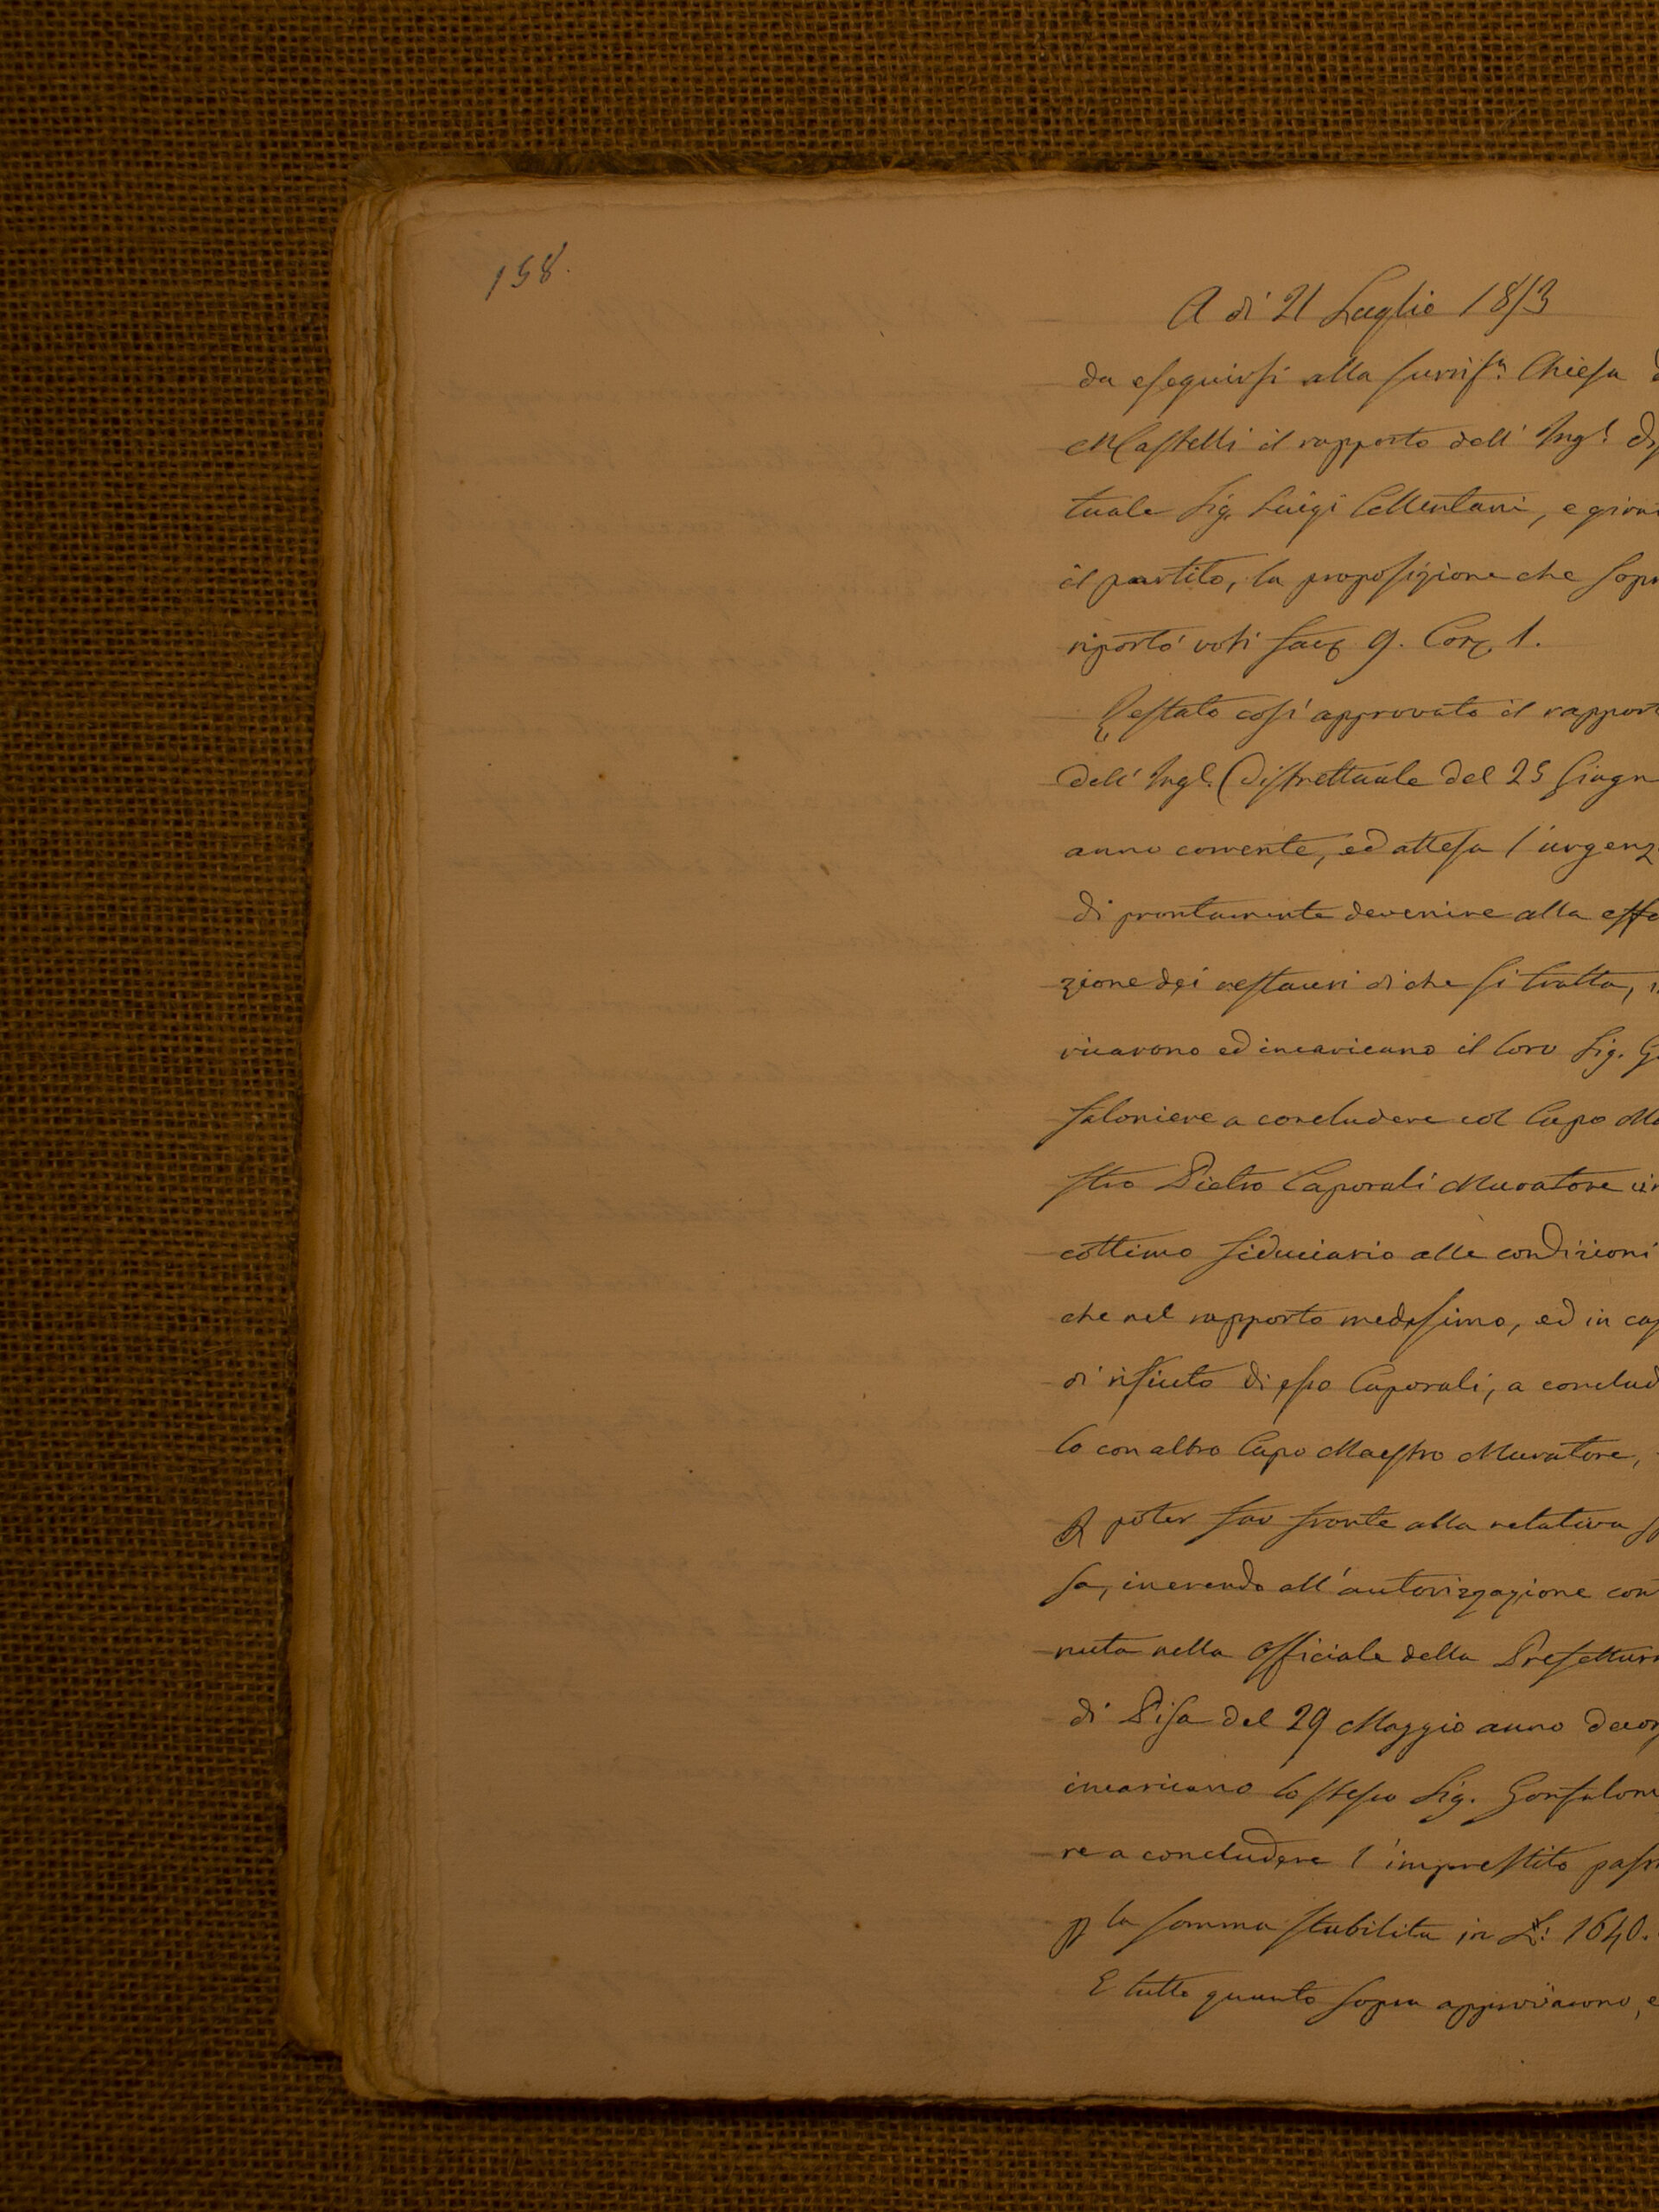 158.
A dì 21 Luglio 1853
da eseguirsi alla Chiesa
Castelli il rapporto dell' Ing.
tuale Sig. Luigi Mentani, e
il partito, la proposizione che
riportò voti 9. 1.
Restato così approvato il
Dell' Ing. Distrettuale del 25
anno corrente, ed attesa
di prontamente devenire alla
zione dei restauri di che si tratta,
ricarono ed incaricano il loro Sig.
faloniere a concludere col Capo
stro Pietro Caporali Muratore
cottimo fiduciario alle condizioni
che nel rapporto medesimo, ed in
di rifiuto di esso Caporali, a
lo con altro Capo Maestro Muratore,
poter far fronte alla relativa
sa, inerendo all'autorizzazione
nuta nella Officiale della
di Pisa del 29 Maggio anno
incaricano lo stesso Sig.
re a concludere l'imprestito
la somma stabilita in L: 1640.
E tutto quanto sopra approvarono,